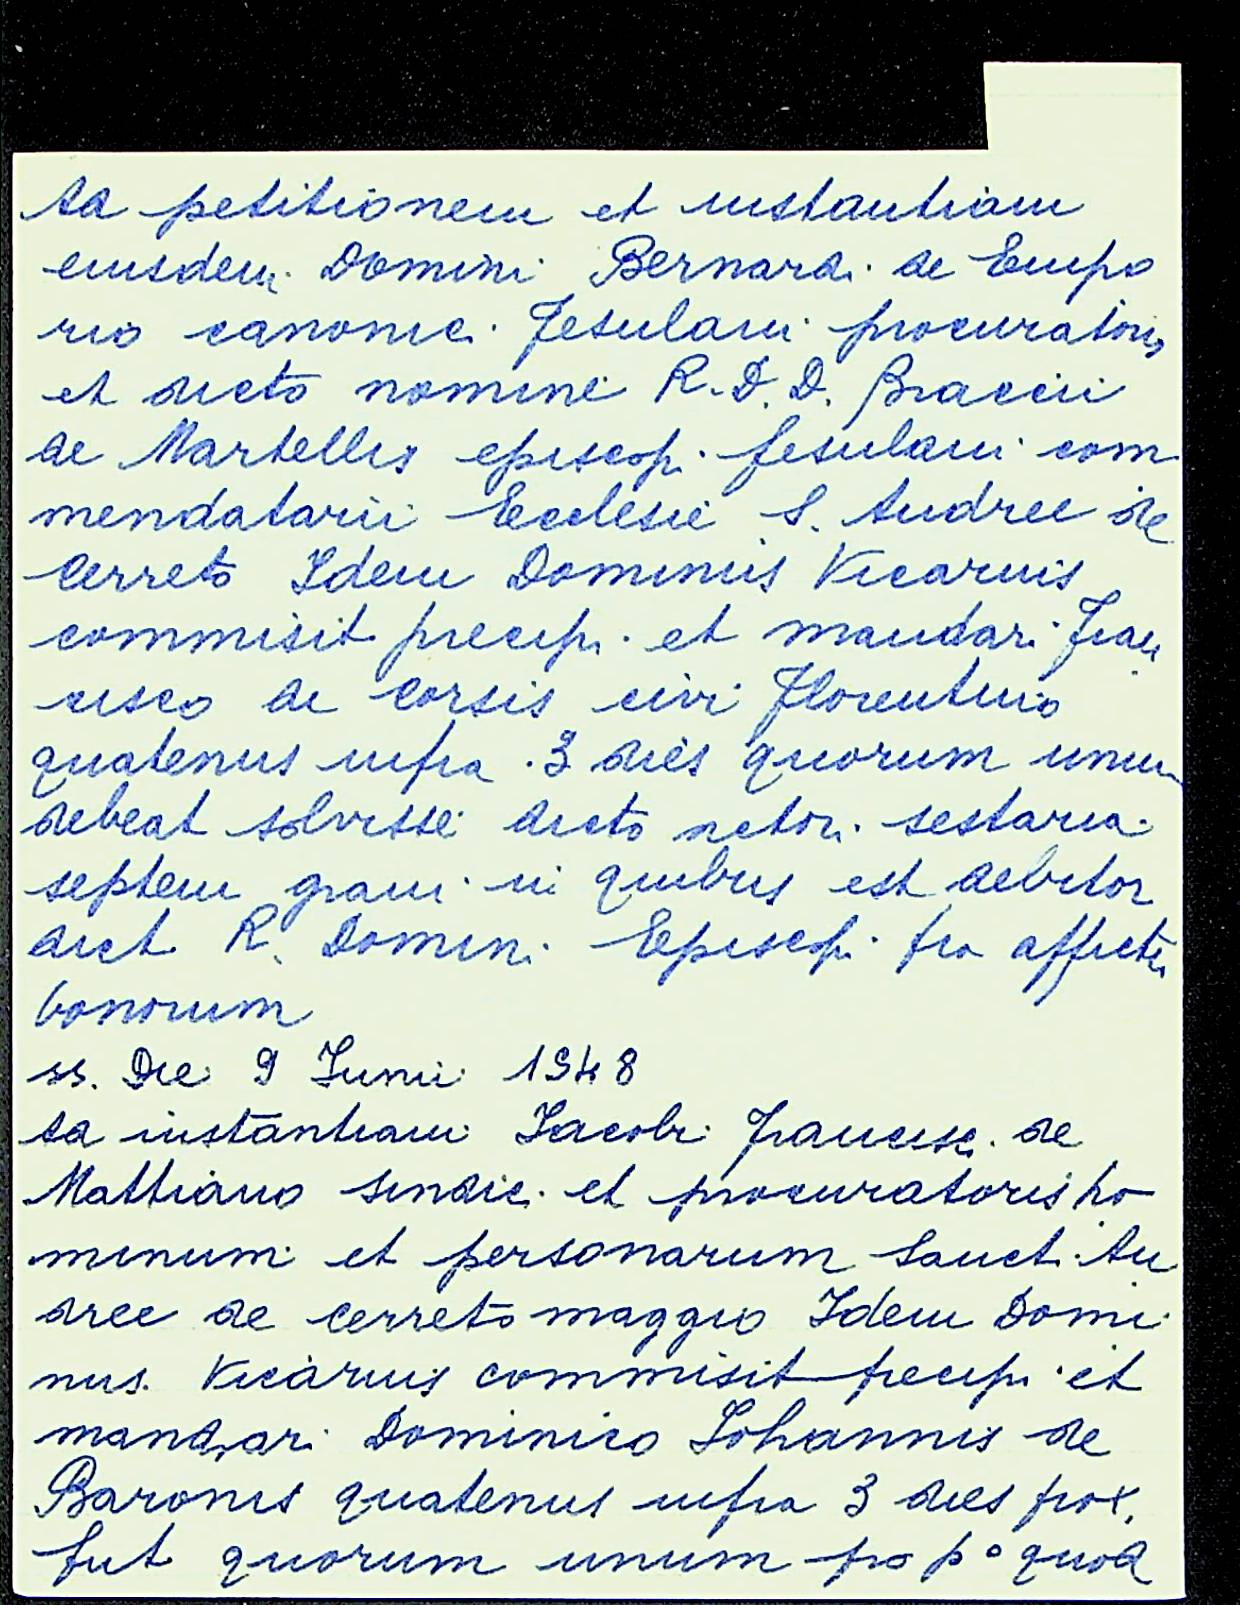 Ad petitionem et instantiam
eiusdem Domini Bernardi de Empo
rio canonic. Fesulani procuratoris
et dicto nomine R. D. D. Braccii
de Martellis episcop. fesulani com
mendatarii Ecclesie S. Andree de
Cerreto Idem Dominus Vicarius
commisit precip. et mandari Fran
cisco de Corsis civi Florentino
quatenus infra 3 dies quorum unum
debeat solvisse dicto actori sestaria
septem grani in quibus est debitor
dict R. Domini Episcopi pro affictu
bonorum
ss. Die 9 Junii 1548
Ad instantiam Iacobi Francisc. de
Mattiano sindic. et procuratoris ho
minum et personarum Sanct. An
dree de Cerreto maggio Idem Domi
nus Vicarius commisit precip. et
mandari Dominico Iohannis de
Baronis quatenus infra 3 dies prox.
fut quorum unum pro p° quod